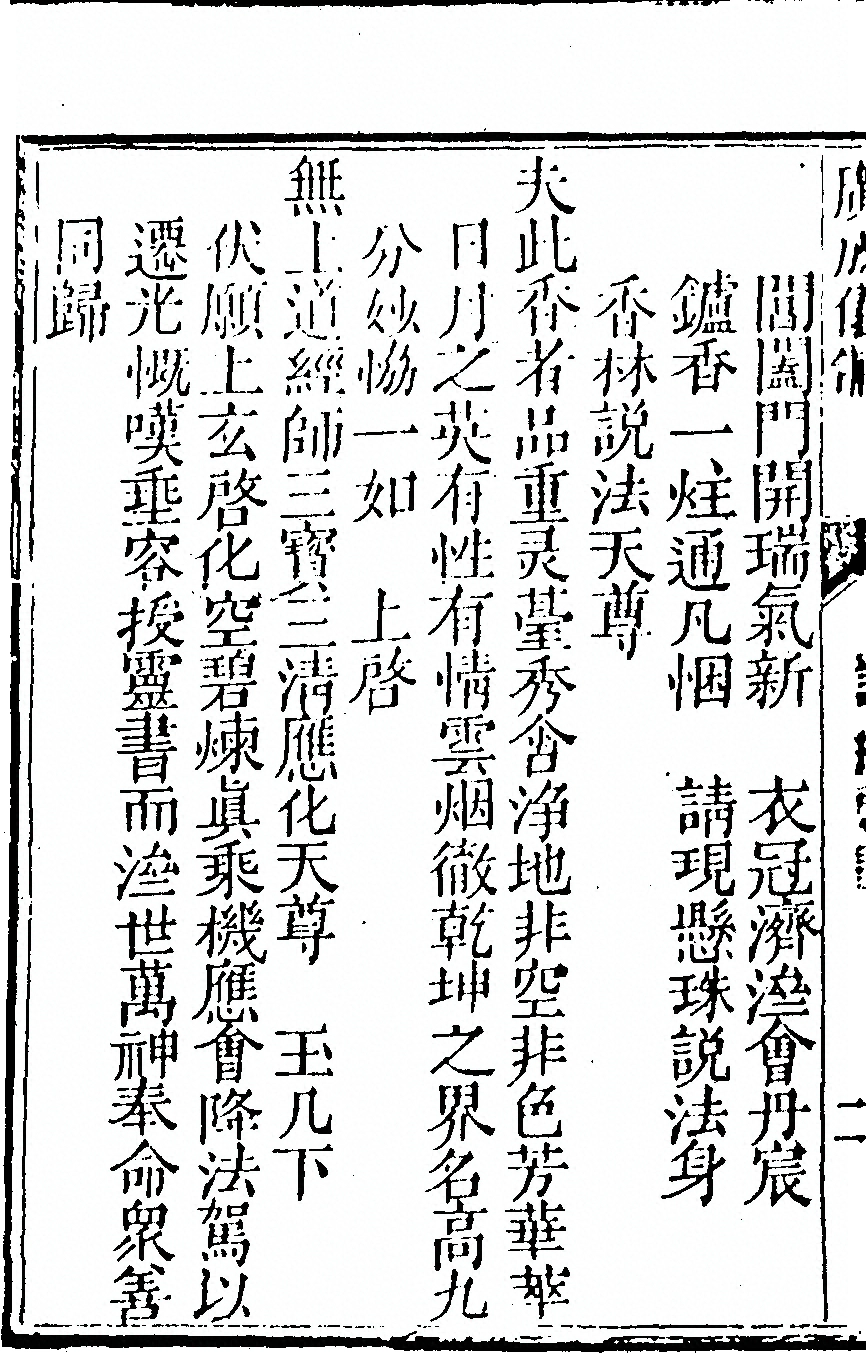 廣成儀制
二
閶闔門開瑞氣新　衣冠濟濟會丹宸
鑪香一炷通凡悃　請現懸珠説法身
香林説法天尊
夫此香者品重灵䑓秀含浄地非空非色芳華萃
日月之英有性有情雲烟徹乾坤之界名高九
分妙恊一如　上啓
無上道經師三寶三清應化天尊　玉几下
伏願上玄啓化空碧煉眞乘機應會降法駕以
遷光慨嘆垂容授靈書而濟世萬神奉命衆善
同歸